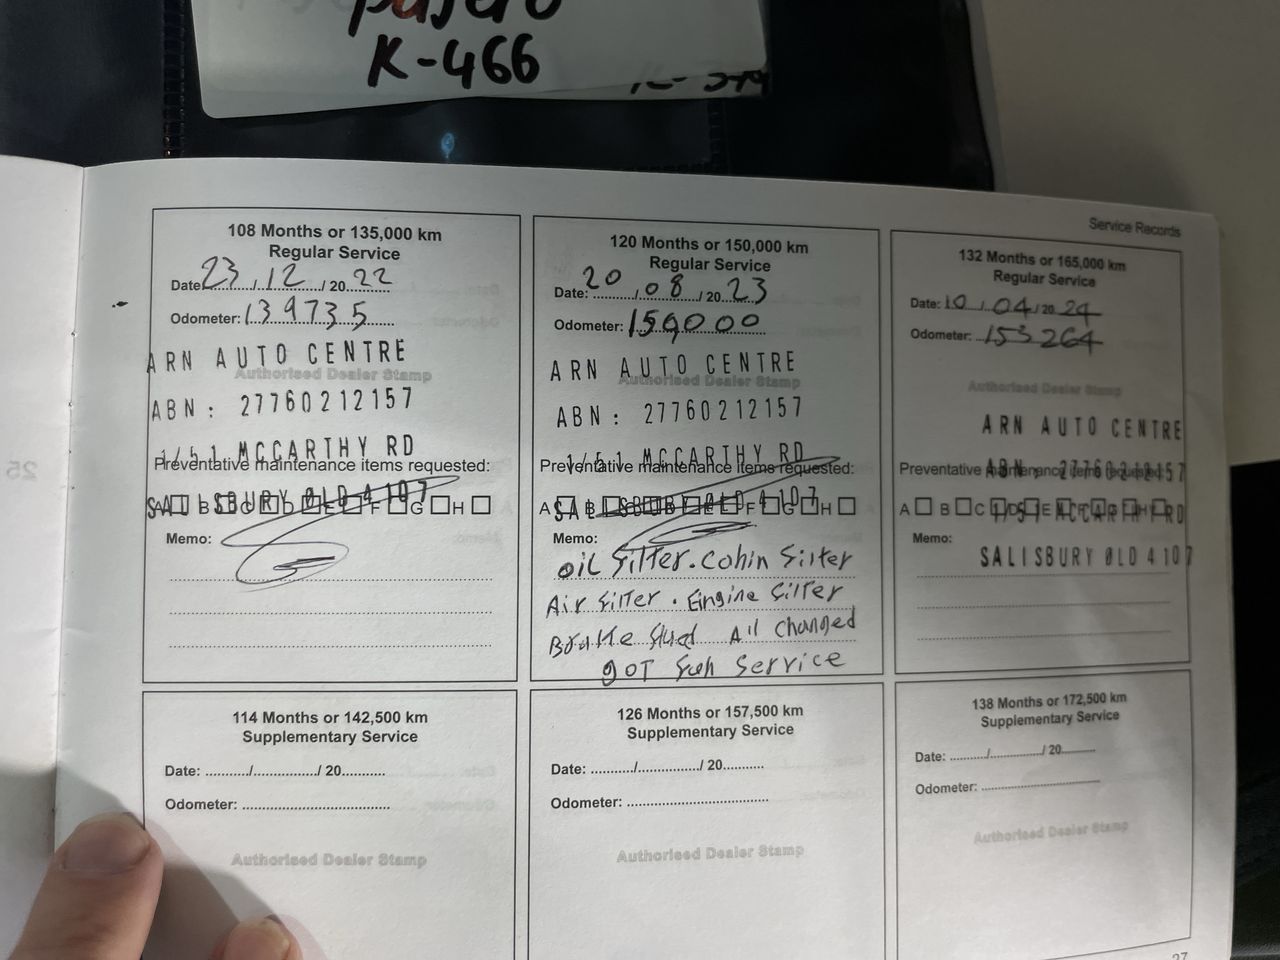 pajero
K-466
Service Records
108 Months or 135,000 km
Regular Service
Date: 23/12/2022
Odometer: 139735
ARN AUTO CENTRE
Authorised Dealer Stamp
ABN: 27760212157
1/51 MCCARTHY RD
Preventative maintenance items requested:
SALISBURY QLD 4107
A B C D E F G H
Memo:
120 Months or 150,000 km
Regular Service
Date: 20/08/2023
Odometer: 150000
ARN AUTO CENTRE
Authorised Dealer Stamp
ABN: 27760212157
1/51 MCCARTHY RD
Preventative maintenance items requested:
SALISBURY QLD 4107
A B C D E F G H
Memo:
oil filter. Cabin filter
Air filter. Engine filter
Brake fluid All changed
got full service
132 Months or 165,000 km
Regular Service
Date: 10/04/2024
Odometer: 153264
Authorised Dealer Stamp
ARN AUTO CENTRE
Preventative maintenance items requested:
ABN: 27760212157
A B C D E F G H
1/51 MCCARTHY RD
Memo:
SALISBURY QLD 4107
114 Months or 142,500 km
Supplementary Service
Date: ........../............../ 20...........
Odometer: ......................................
Authorised Dealer Stamp
126 Months or 157,500 km
Supplementary Service
Date: ........../............../ 20...........
Odometer: ......................................
Authorised Dealer Stamp
138 Months or 172,500 km
Supplementary Service
Date: ........../............../ 20...........
Odometer: ......................................
Authorised Dealer Stamp
27
25